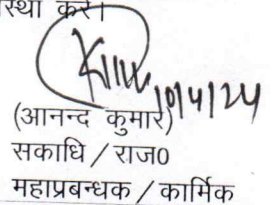 स्था करें।
10/4/24
(आनन्द कुमार)
सकाधि / राज0
महाप्रबन्धक / कार्मिक